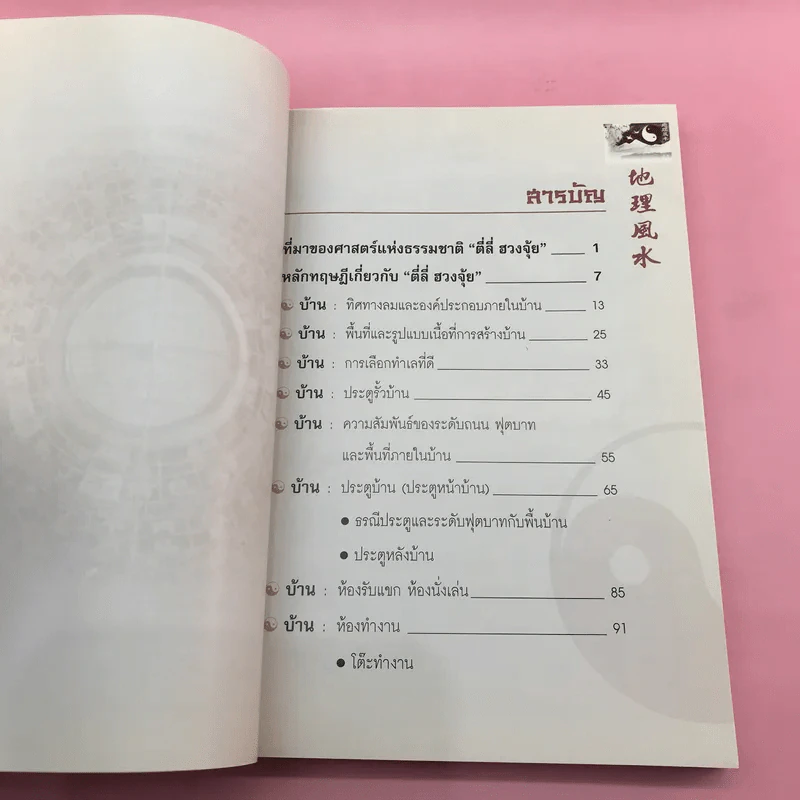 สารบัญ
地理風水
ที่มาของศาสตร์แห่งธรรมชาติ “ตี่ลี่ ฮวงจุ้ย” ____ 1
หลักทฤษฎีเกี่ยวกับ “ตี่ลี่ ฮวงจุ้ย” ____ 7
บ้าน : ทิศทางลมและองค์ประกอบภายในบ้าน ____ 13
บ้าน : พื้นที่และรูปแบบเนื้อที่การสร้างบ้าน ____ 25
บ้าน : การเลือกทำเลที่ดี ____ 33
บ้าน : ประตูรั้วบ้าน ____ 45
บ้าน : ความสัมพันธ์ของระดับถนน ฟุตบาท
และพื้นที่ภายในบ้าน ____ 55
บ้าน : ประตูบ้าน (ประตูหน้าบ้าน) ____ 65
● ธรณีประตูและระดับฟุตบาทกับพื้นบ้าน
● ประตูหลังบ้าน
บ้าน : ห้องรับแขก ห้องนั่งเล่น ____ 85
บ้าน : ห้องทำงาน ____ 91
● โต๊ะทำงาน